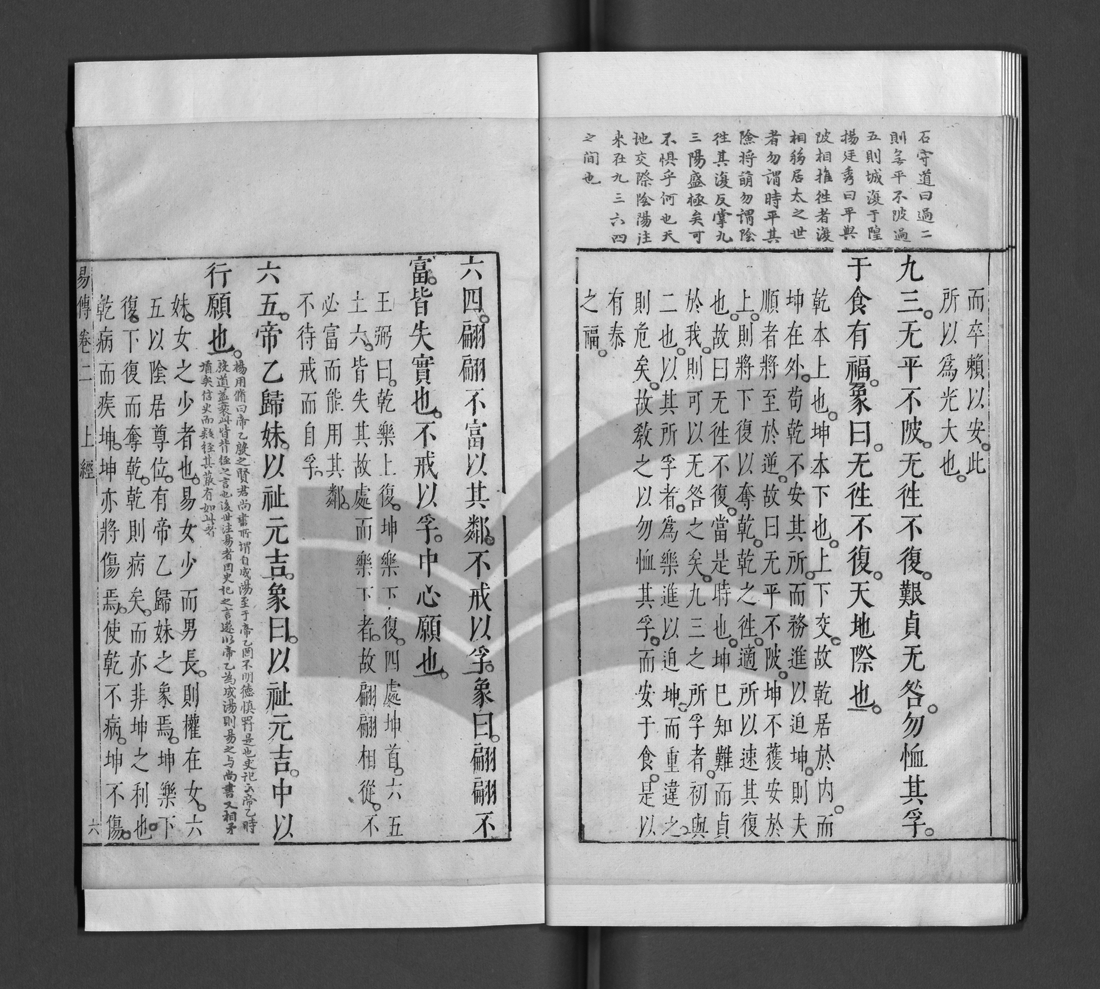 石守道曰過二
則無平不陂過
五則城復于隍
楊廷秀曰平與
陂相推徃者復
相移居太之世
者勿謂時平其
險將萌勿謂陰
徃其復反掌九
三陽盛極矣可
不惧乎何也天
地交際陰陽注
来在九三六四
之间也
而卒賴以安此
所以為光大也
九三无平不陂无徃不復艱貞无咎勿恤其孚
于食有福象曰无徃不復天地際也
乾本上也坤本下也上下交故乾居於内而
坤在外苟乾不安其所而務進以迫坤則夫
順者將至於逆故曰无平不陂坤不獲安於
上則將下復以奪乾乾之徃適所以速其復
也故曰无徃不復當是時也坤已知難而貞
於我則可以无咎之矣九三之所孚者初與
二也以其所孚者為樂進以迫坤而重違之
則危矣故教之以勿恤其孚而安于食是以
有泰
之福
六四翩翩不富以其鄰不戒以孚象曰翩翩不
富皆失實也不戒以孚中心願也
王弼曰乾樂上復坤樂下復四處坤首六五
上六皆失其故處而樂下者故翩翩相從不
必富而能用其鄰
不待戒而自孚
六五帝乙歸妹以祉元吉象曰以祉元吉中以
行願也
楊用脩曰帝乙殷之賢君尚書所謂自成湯至于帝乙罔不明德慎罰是也史記云帝乙時
殷道益衰此皆背經之言也後世注易者因史記之言遂以帝乙為成湯則易之与尚書又相矛
盾矣信史而疑經其蔽有如此者
妹女之少者也易女少而男長則權在女六
五以陰居尊位有帝乙歸妹之象焉坤樂下
復下復而奪乾乾則病矣而亦非坤之利也
乾病而疾坤坤亦將傷焉使乾不病坤不傷
易傳卷二 上經 六